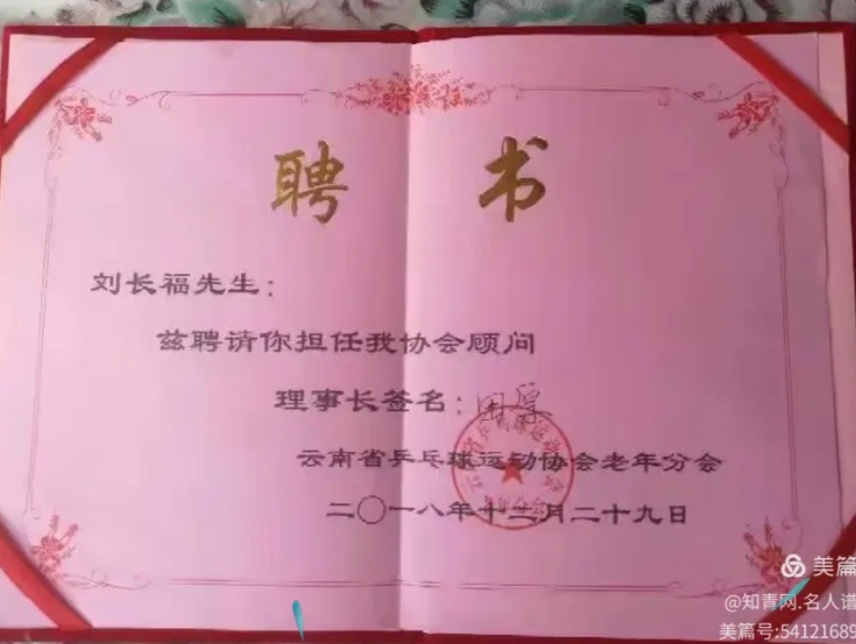 聘书
刘长福先生：
兹聘请你担任我协会顾问
理事长签名：
云南省乒乓球运动协会老年分会
二〇一八年十二月二十九日
美篇
@知青网.名人谱
美篇号:54121689